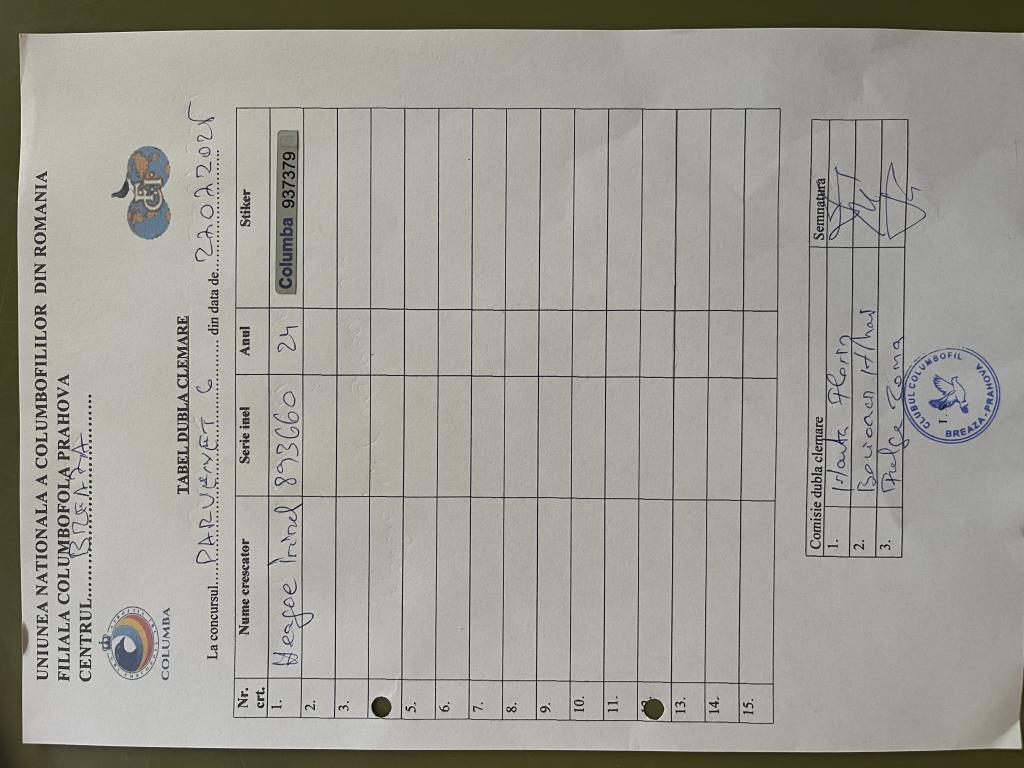 UNIUNEA NATIONALA A COLUMBOFILILOR DIN ROMANIA
FILIALA COLUMBOFOLA PRAHOVA
CENTRUL......BREAZA......
COLUMBA
FCI
TABEL DUBLA CLEMARE
La concursul.....PARVENET 6......... din data de...22.02.2025
Nr. crt. Nume crescator Serie inel Anul Stiker
1. Neagoe Irinel 893660 24 Columba 937379
2.
3.
5.
6.
7.
8.
9.
10.
11.
13.
14.
15.
Comisie dubla clemare Semnatura
1. Florin
2.
3. Toma
CLUBUL COLUMBOFIL
BREAZA - PRAHOVA
1.